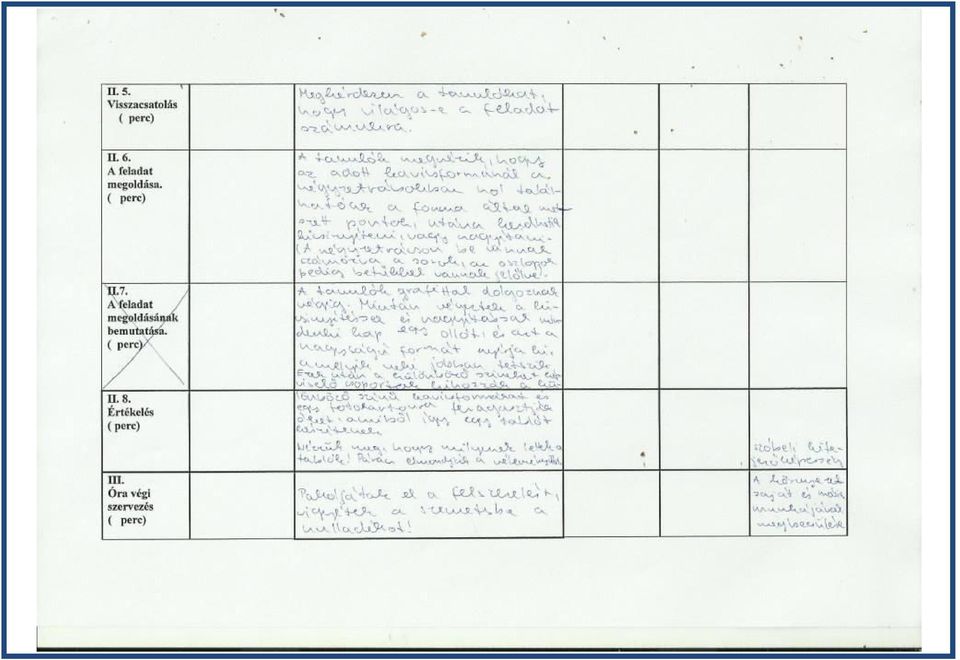 II. 5.
Visszacsatolás
( perc)
Megkérdezem a tanulókat,
hogy világos-e a feladat
számukra.
II. 6.
A feladat
megoldása.
( perc)
A tanulók megnézik, hogy
az adott kavicsformánál a
négyzetrácsokban hol talál-
hatóak a forma által met-
szett pontok, utána kezdhetik
kicsinyíteni, vagy nagyítani.
(A négyzetrácson be vannak
számozva a sorok, az oszlopok
pedig betűkkel vannak jelölve.
II.7.
A feladat
megoldásának
bemutatása.
( perc)
A tanulók grafittal dolgoznak
végig. Miután végeztek a ki-
csinyítéssel és nagyítással min-
denki kap egy ollót, és azt a
nagyságú formát nyírja ki,
amelyik neki jobban tetszik.
Ezek után a különböző színeket kép-
viselő csoportok kihozzák a kü-
II. 8.
Értékelés
( perc)
lönböző színű kavicsformákat és
egy fotókartonra felragasztják
őket, amiből így egy tablót
készítenek.
Nézzük meg, hogy milyenek lettek a
tablók! Páran elmondják a véleményüket
szóbeli kife-
jezőképesség
III.
Óra végi
szervezés
( perc)
Pakoljátok el a felszerelést,
vigyétek a szemetesbe a
hulladékot!
A környezet
saját és más
munkájának
megbecsülése